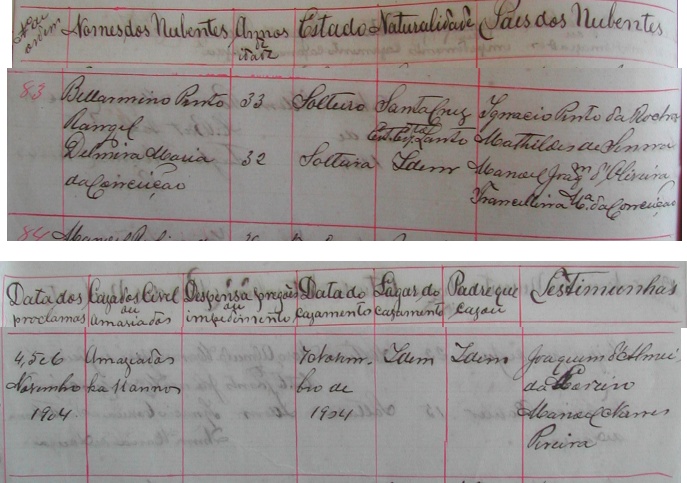 Nº de ordem Nomes dos Nubentes Annos de idade Estado Naturalidade Paes dos Nubentes
83 Bellarmino Pinto 33 Solteiro Santa Cruz Ignacio Pinto da Rocha
Rangel Est. Esp. Santo Mathildes de
Delmira Maria 32 Solteira Idem Manoel Joaqm d'Oliveira
da Conceição Francellina Mª da Conceição
84 Manoel
Data dos proclamas Cazados Civil ou amasiados Dispensa pregões ou impedimento Data do cazamento Lugar do cazamento Padre que cazou Testimunhas
4, 5 e 6 Amaziados 7 Novem- Idem Idem Joaquim d'Almei-
Novembro ha 11 annos bro de da
1904 1904 Manoel Nunes
Pereira